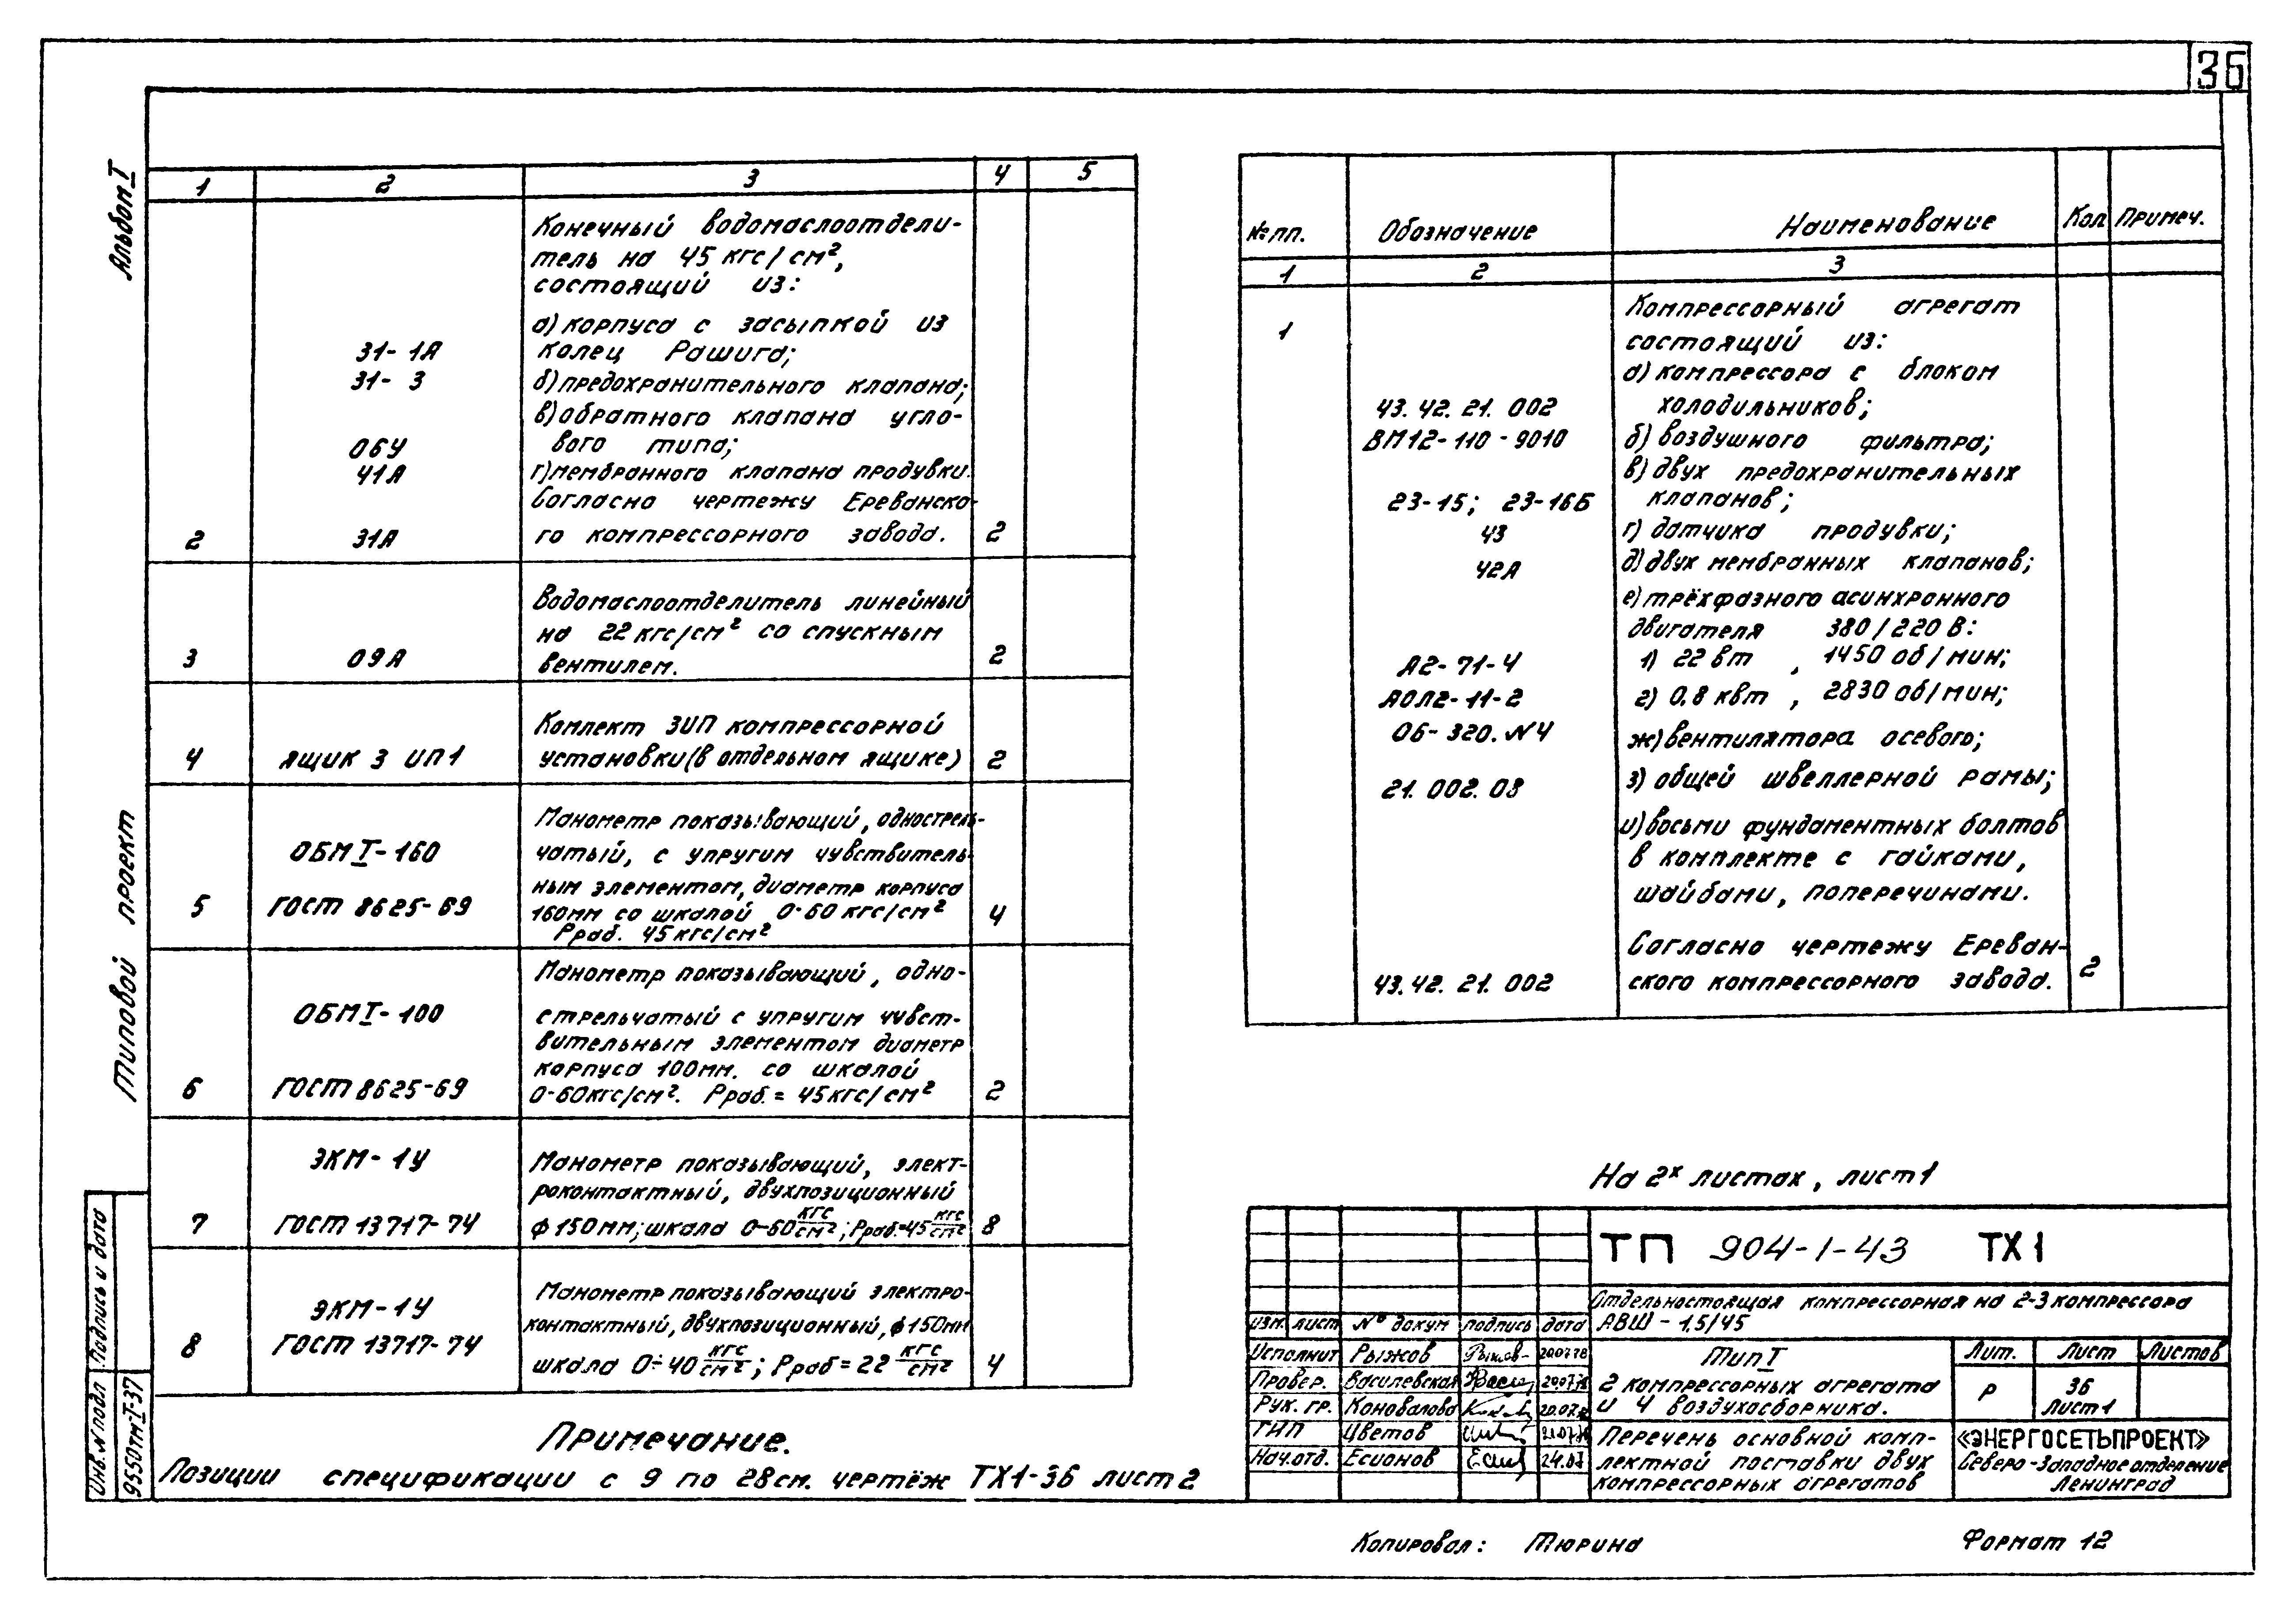 36
Альбом I
Типовой проект
Подпись и дата
Инв. № подл
9550тм-I-37
1 2 3 4 5
Конечный водомаслоотдели-
тель на 45 кгс/см²,
состоящий из:
а) корпуса с засыпкой из
31-1А колец Рашига;
31-3 б) предохранительного клапана;
в) обратного клапана угло-
06У вого типа;
41А г) мембранного клапана продувки.
Согласно чертежу Ереванско-
2 31А го компрессорного завода. 2
Водомаслоотделитель линейный
на 22 кгс/см² со спускным
3 09А вентилем. 2
Комплект ЗИП компрессорной
4 ящик 3 ИП1 установки (в отдельном ящике) 2
Манометр показывающий, однострель-
ОБМ I-160 чатый, с упругим чувствитель-
ным элементом, диаметр корпуса
5 ГОСТ 8625-69 160мм со шкалой 0-60 кгс/см² 4
Рраб. 45 кгс/см²
Манометр показывающий, одно-
ОБМ I-100 стрельчатый с упругим чувст-
вительным элементом диаметр
корпуса 100мм. со шкалой
6 ГОСТ 8625-69 0-60кгс/см². Рраб.= 45кгс/см² 2
ЭКМ-1У Манометр показывающий, элект-
роконтактный, двухпозиционный
7 ГОСТ 13717-74 ф 150мм; шкала 0-60 кгс/см²; Рраб.=45 кгс/см² 8
Манометр показывающий электро-
ЭКМ-1У контактный, двухпозиционный, ф 150мм
8 ГОСТ 13717-74 шкала 0÷40 кгс/см²; Рраб = 22 кгс/см² 4
Примечание.
Позиции спецификации с 9 по 28 см. чертёж ТХ1-36 лист 2
№ пп. Обозначение Наименование Кол Примеч.
1 2 3
1 Компрессорный агрегат
состоящий из:
а) компрессора с блоком
43.42.21.002 холодильников;
ВМ12-110-9010 б) воздушного фильтра;
в) двух предохранительных
23-15; 23-16Б клапанов;
43 г) датчика продувки;
42А д) двух мембранных клапанов;
е) трёхфазного асинхронного
двигателя 380/220 В:
А2-71-4 1) 22 вт , 1450 об/мин;
АОЛ2-11-2 2) 0,8 квт , 2830 об/мин;
06-320.N4 ж) вентилятора осевого;
21.002.03 з) общей швеллерной рамы;
и) восьми фундаментных болтов
в комплекте с гайками,
шайбами, поперечинами.
Согласно чертежу Ереван-
43.42.21.002 ского компрессорного завода. 2
На 2х листах, лист 1
ТП 904-1-43 ТХ1
Отдельностоящая компрессорная на 2-3 компрессора
АВШ-1,5/45
изм. лист № докум подпись дата
Исполнит Рыжов 20.07.78
Провер. Василевская 20.07.78
Рук. гр. Коновалова 20.07.78
ГИП Цветов 21.07.78
Нач.отд. Есионов 24.07
Тип I
2 компрессорных агрегата
и 4 воздухосборника.
Лит. Лист Листов
Р 36
Лист 1
Перечень основной комп-
лектной поставки двух
компрессорных агрегатов
«ЭНЕРГОСЕТЬПРОЕКТ»
Северо-Западное отделение
Ленинград
Копировал: Тюрина
Формат 12